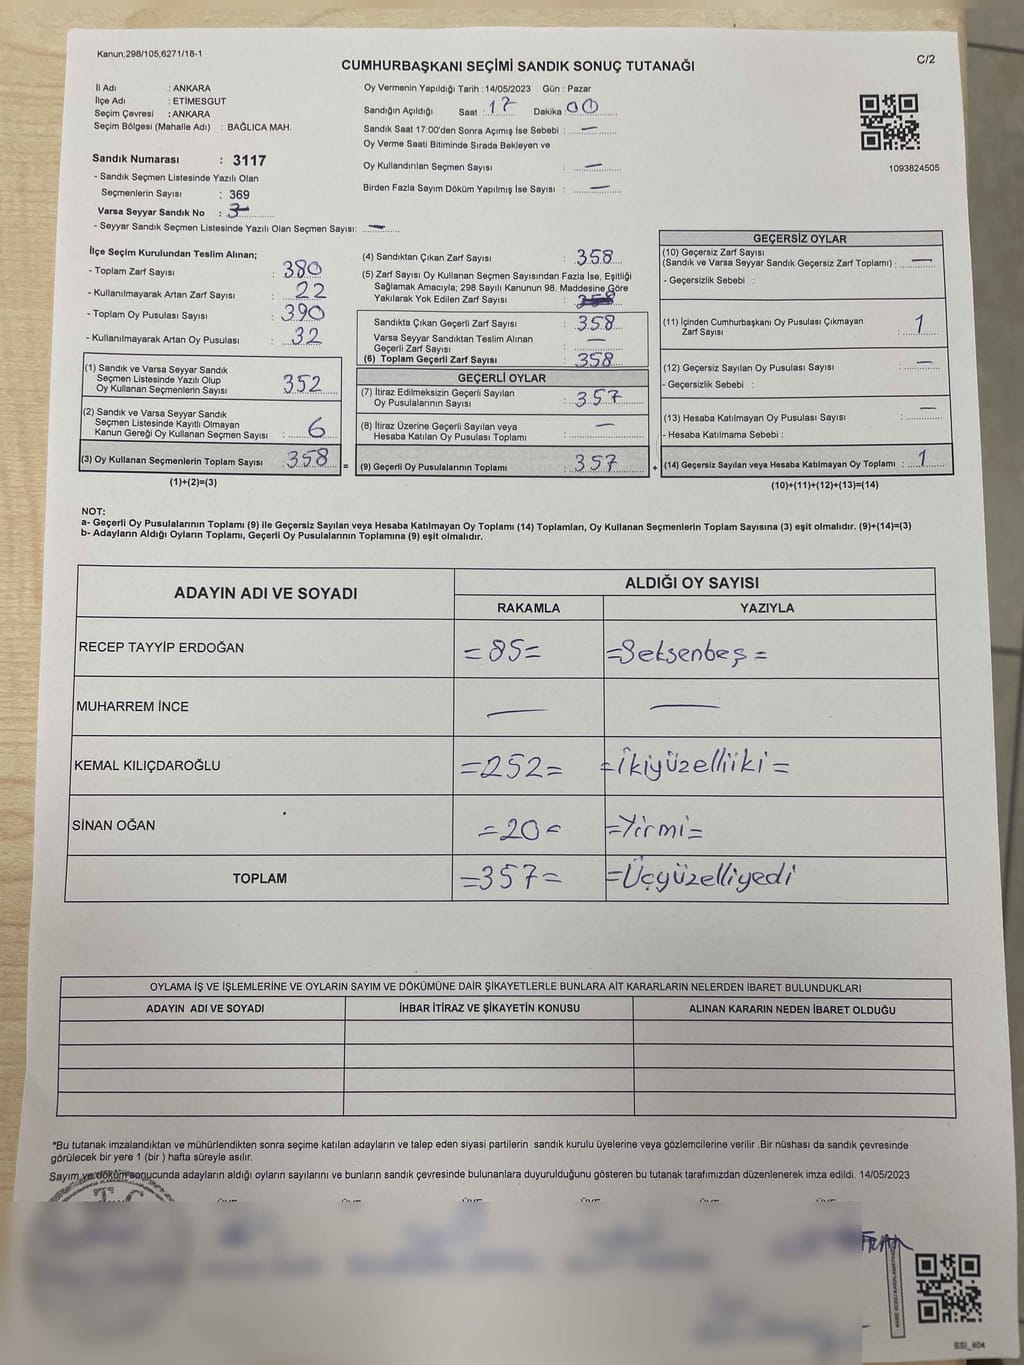 Kanun;298/105,6271/18-1
C/2
CUMHURBAŞKANI SEÇİMİ SANDIK SONUÇ TUTANAĞI
İl Adı : ANKARA
İlçe Adı : ETİMESGUT
Seçim Çevresi : ANKARA
Seçim Bölgesi (Mahalle Adı) : BAĞLICA MAH.
Oy Vermenin Yapıldığı Tarih : 14/05/2023 Gün : Pazar
Sandığın Açıldığı Saat : 17 Dakika 00
Sandık Saat 17:00'den Sonra Açımış İse Sebebi : —
Oy Verme Saati Bitiminde Sırada Bekleyen ve
Oy Kullandırılan Seçmen Sayısı : —
Birden Fazla Sayım Döküm Yapılmış İse Sayısı : —
1093824505
Sandık Numarası : 3117
- Sandık Seçmen Listesinde Yazılı Olan
Seçmenlerin Sayısı : 369
Varsa Seyyar Sandık No :
- Seyyar Sandık Seçmen Listesinde Yazılı Olan Seçmen Sayısı: —
İlçe Seçim Kurulundan Teslim Alınan;
- Toplam Zarf Sayısı : 380
- Kullanılmayarak Artan Zarf Sayısı : 22
- Toplam Oy Pusulası Sayısı : 390
- Kullanılmayarak Artan Oy Pusulası : 32
(1) Sandık ve Varsa Seyyar Sandık
Seçmen Listesinde Yazılı Olup
Oy Kullanan Seçmenlerin Sayısı : 352
(2) Sandık ve Varsa Seyyar Sandık
Seçmen Listesinde Kayıtlı Olmayan
Kanun Gereği Oy Kullanan Seçmen Sayısı : 6
(3) Oy Kullanan Seçmenlerin Toplam Sayısı : 358 =
(1)+(2)=(3)
(4) Sandıktan Çıkan Zarf Sayısı : 358
(5) Zarf Sayısı Oy Kullanan Seçmen Sayısından Fazla İse, Eşitliği
Sağlamak Amacıyla; 298 Sayılı Kanunun 98. Maddesine Göre
Yakılarak Yok Edilen Zarf Sayısı :
Sandıkta Çıkan Geçerli Zarf Sayısı : 358
Varsa Seyyar Sandıktan Teslim Alınan
Geçerli Zarf Sayısı : —
(6) Toplam Geçerli Zarf Sayısı : 358
GEÇERLİ OYLAR
(7) İtiraz Edilmeksizin Geçerli Sayılan
Oy Pusulalarının Sayısı : 357
(8) İtiraz Üzerine Geçerli Sayılan veya
Hesaba Katılan Oy Pusulası Toplamı : —
(9) Geçerli Oy Pusulalarının Toplamı : 357 +
GEÇERSİZ OYLAR
(10) Geçersiz Zarf Sayısı
(Sandık ve Varsa Seyyar Sandık Geçersiz Zarf Toplamı) : —
- Geçersizlik Sebebi :
(11) İçinden Cumhurbaşkanı Oy Pusulası Çıkmayan
Zarf Sayısı : 1
(12) Geçersiz Sayılan Oy Pusulası Sayısı : —
- Geçersizlik Sebebi :
(13) Hesaba Katılmayan Oy Pusulası Sayısı : —
- Hesaba Katılmama Sebebi :
(14) Geçersiz Sayılan veya Hesaba Katılmayan Oy Toplamı : 1
(10)+(11)+(12)+(13)=(14)
NOT:
a- Geçerli Oy Pusulalarının Toplamı (9) ile Geçersiz Sayılan veya Hesaba Katılmayan Oy Toplamı (14) Toplamları, Oy Kullanan Seçmenlerin Toplam Sayısına (3) eşit olmalıdır. (9)+(14)=(3)
b- Adayların Aldığı Oyların Toplamı, Geçerli Oy Pusulalarının Toplamına (9) eşit olmalıdır.
ADAYIN ADI VE SOYADI
ALDIĞI OY SAYISI
RAKAMLA YAZIYLA
RECEP TAYYİP ERDOĞAN =85= =Seksenbeş=
MUHARREM İNCE — —
KEMAL KILIÇDAROĞLU =252= =İkiyüzelliiki=
SİNAN OĞAN =20= =Yirmi=
TOPLAM =357= =Üçyüzelliyedi
OYLAMA İŞ VE İŞLEMLERİNE VE OYLARIN SAYIM VE DÖKÜMÜNE DAİR ŞİKAYETLERLE BUNLARA AİT KARARLARIN NELERDEN İBARET BULUNDUKLARI
ADAYIN ADI VE SOYADI İHBAR İTİRAZ VE ŞİKAYETİN KONUSU ALINAN KARARIN NEDEN İBARET OLDUĞU
*Bu tutanak imzalandıktan ve mühürlendikten sonra seçime katılan adayların ve talep eden siyasi partilerin sandık kurulu üyelerine veya gözlemcilerine verilir .Bir nüshası da sandık çevresinde
görülecek bir yere 1 (bir ) hafta süreyle asılır.
Sayım ve döküm sonucunda adayların aldığı oyların sayılarını ve bunların sandık çevresinde bulunanlara duyurulduğunu gösteren bu tutanak tarafımızdan düzenlenerek imza edildi. 14/05/2023
T.C
SSI_404